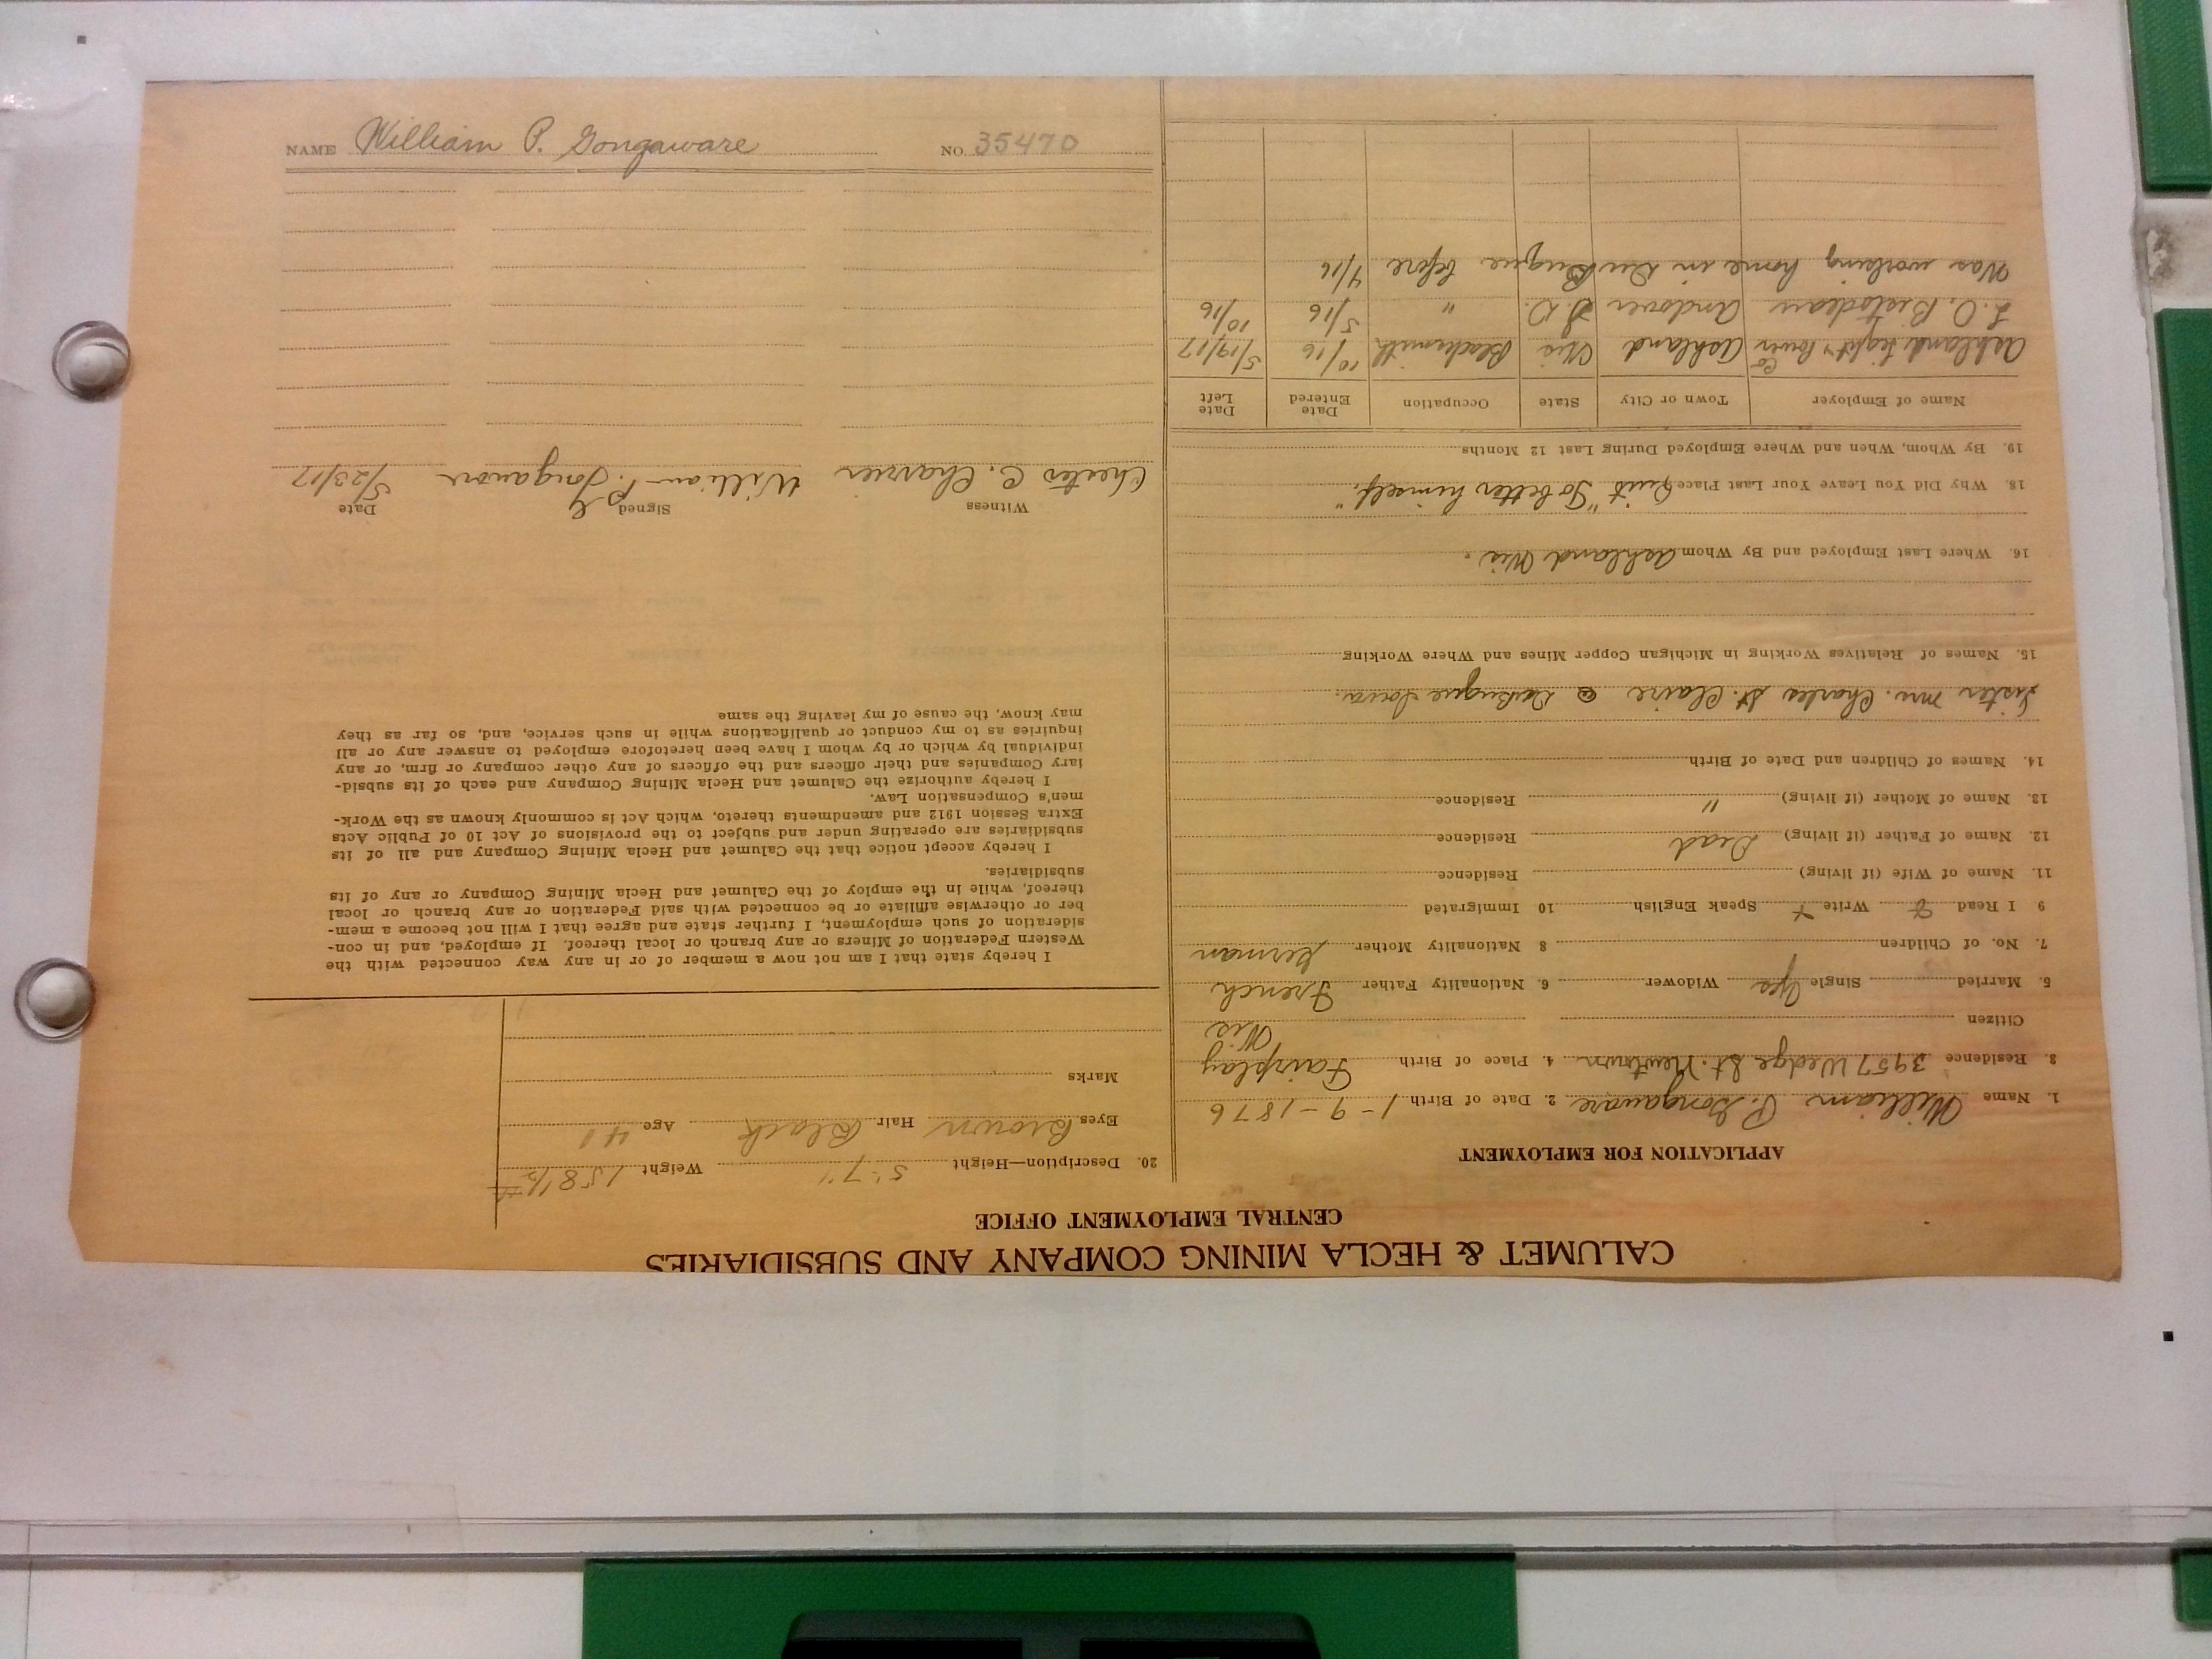 CALUMET & HECLA MINING COMPANY AND SUBSIDIARIES
CENTRAL EMPLOYMENT OFFICE
APPLICATION FOR EMPLOYMENT
1. Name William P. Gongaware 2. Date of Birth 1-9-1876
3. Residence 3957 Wedge St. Newtown 4. Place of Birth Fairplay
Wis
Citizen
5. Married Single Yes Widower 6. Nationality Father French
7. No. of Children 8 Nationality Mother German
9 I Read Write Speak English 10 Immigrated
11. Name of Wife (if living) Residence
12. Name of Father (if living) Dead Residence
13. Name of Mother (if living) " Residence
14. Names of Children and Date of Birth
Sister Mrs. Charles St. Claire @ DuBuque Iowa.
15. Names of Relatives Working in Michigan Copper Mines and Where Working
16. Where Last Employed and By Whom Ashland Wis.
18. Why Did You Leave Your Last Place Quit "To better himself."
19. By Whom, When and Where Employed During Last 12 Months
Name of Employer Town or City State Occupation Date Entered Date Left
Ashland Light & Power Co Ashland Wis Blacksmith 10/16 5/19/17
Andover S.D. " 5/16 10/16
Was working home in DuBuque before 4/16
20. Description—Height 5'7" Weight 158 1/2 #
Eyes Brown Hair Black Age 41
Marks
I hereby state that I am not now a member of or in any way connected with the
Western Federation of Miners or any branch or local thereof. If employed, and in con-
sideration of such employment, I further state and agree that I will not become a mem-
ber or otherwise affiliate or be connected with said Federation or any branch or local
thereof, while in the employ of the Calumet and Hecla Mining Company or any of its
subsidiaries.
I hereby accept notice that the Calumet and Hecla Mining Company and all of its
subsidiaries are operating under and subject to the provisions of Act 10 of Public Acts
Extra Session 1912 and amendments thereto, which Act is commonly known as the Work-
men's Compensation Law.
I hereby authorize the Calumet and Hecla Mining Company and each of its subsid-
iary Companies and their officers and the officers of any other company or firm, or any
individual by which or by whom I have been heretofore employed to answer any or all
inquiries as to my conduct or qualifications while in such service, and, so far as they
may know, the cause of my leaving the same
Witness Signed Date
Chester C. William P. Gongaware 5/23/17
NAME William P. Gongaware NO. 35470